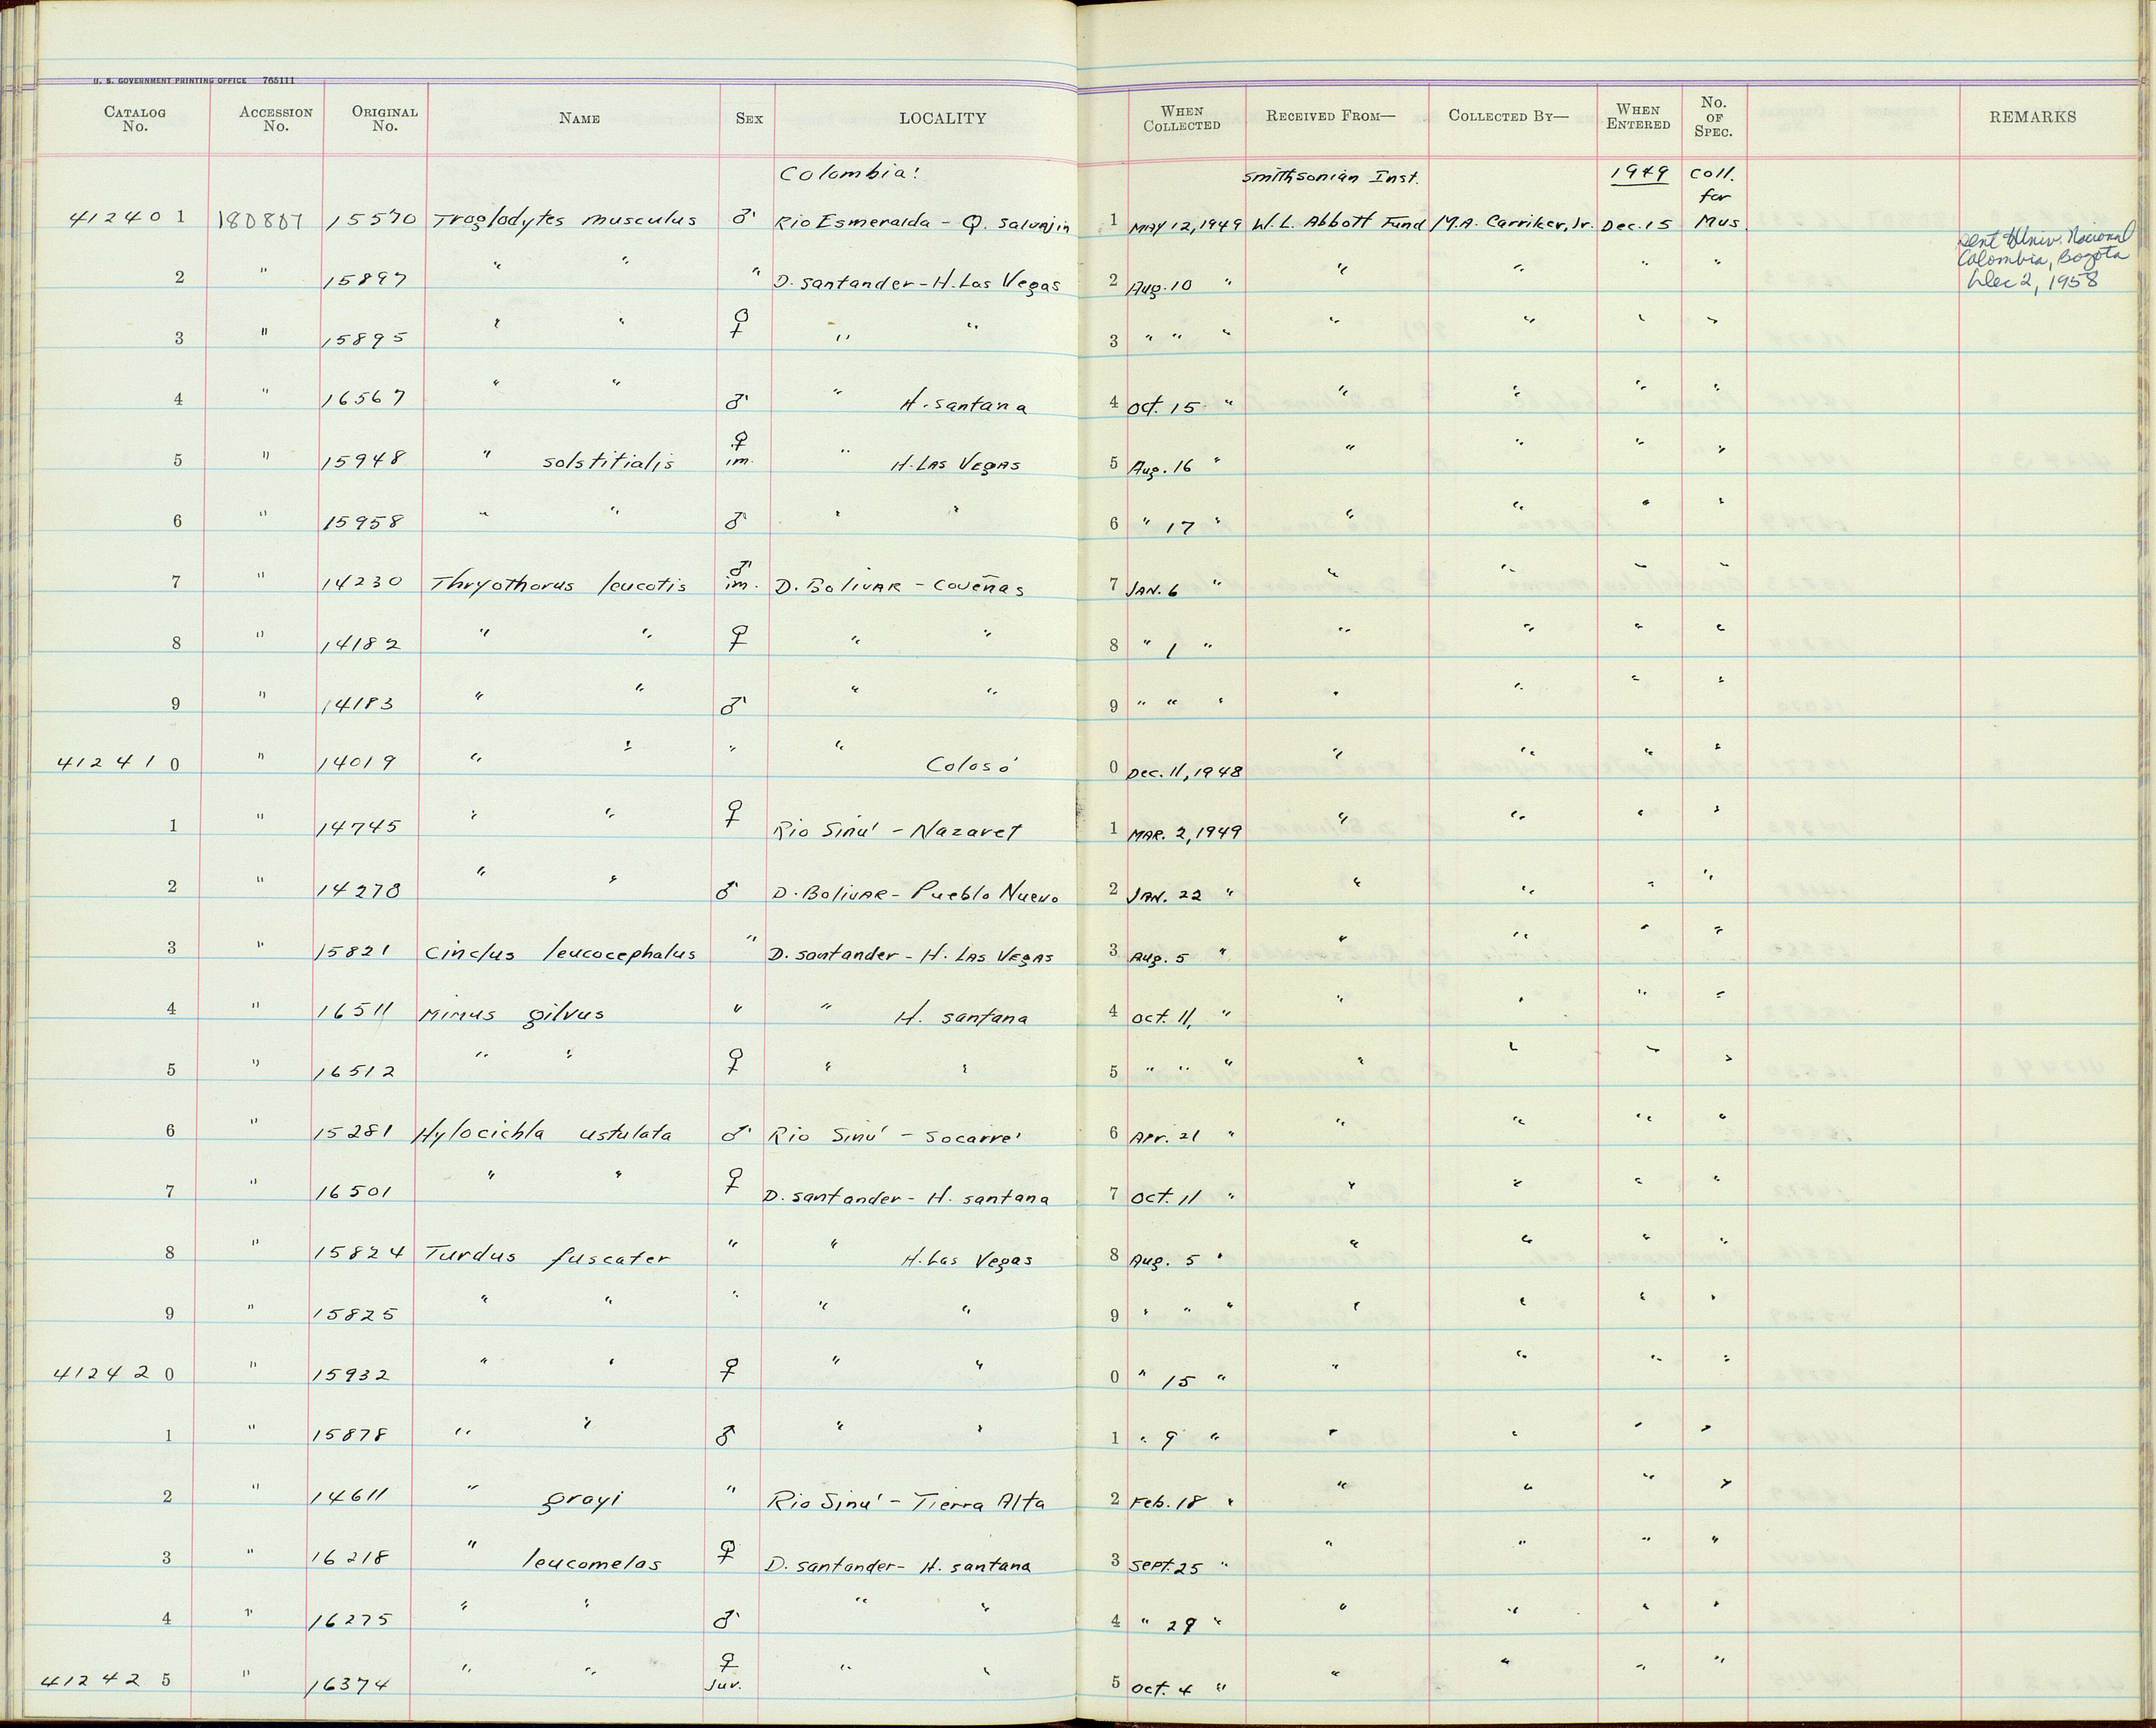 U. S. GOVERNMENT PRINTING OFFICE 765111
CATALOG No. ACCESSION No. ORIGINAL No. NAME SEX LOCALITY WHEN COLLECTED RECEIVED FROM— COLLECTED BY— WHEN ENTERED No. OF SPEC. REMARKS
Colombia: Smithsonian Inst. 1949 Coll. for
412401 180807 15570 Troglodytes musculus ♂ Rio Esmeralda - Q. Salvajin 1 MAY 12, 1949 W. L. Abbott Fund M.A. Carriker, Jr. Dec. 15 Mus.
2 " 15897 " " " D. Santander - H. Las Vegas 2 Aug. 10 " " " " " Sent to Univ. Nacional Colombia, Bogota Dec 2, 1958
3 " 15895 " " ♀ " " 3 " " " " " " "
4 " 16567 " " ♂ " H. Santana 4 Oct. 15 " " " " "
5 " 15948 " solstitialis ♀ im. " H. Las Vegas 5 Aug. 16 " " " " "
6 " 15958 " " ♂ " " 6 " 17 " " " " "
7 " 14230 Thryothorus leucotis ♂ im. D. Bolivar - Coveñas 7 JAN. 6 " " " " "
8 " 14182 " " ♀ " " 8 " 1 " " " " "
9 " 14183 " " ♂ " " 9 " " " " " " "
412410 " 14019 " " " " Colosó 0 Dec. 11, 1948 " " " "
1 " 14745 " " ♀ Rio Sinú - Nazaret 1 MAR. 2, 1949 " " " "
2 " 14278 " " ♂ D. Bolivar - Pueblo Nuevo 2 JAN. 22 " " " " "
3 " 15821 Cinclus leucocephalus " D. Santander - H. Las Vegas 3 Aug. 5 " " " " "
4 " 16511 Mimus gilvus " " H. Santana 4 Oct. 11, " " " " "
5 " 16512 " " ♀ " " 5 " " " " " " "
6 " 15281 Hylocichla ustulata ♂ Rio Sinú - Socarré 6 Apr. 21 " " " " "
7 " 16501 " " ♀ D. Santander - H. Santana 7 Oct. 11 " " " " "
8 " 15824 Turdus fuscater " " H. Las Vegas 8 Aug. 5 " " " " "
9 " 15825 " " " " " 9 " " " " " " "
412420 " 15932 " " ♀ " " 0 " 15 " " " " "
1 " 15878 " " ♂ " " 1 " 9 " " " " "
2 " 14611 " grayi " Rio Sinú - Tierra Alta 2 Feb. 18 " " " " "
3 " 16218 " leucomelas ♀ D. Santander - H. Santana 3 Sept. 25 " " " " "
4 " 16275 " " ♂ " " 4 " 29 " " " " "
412425 " 16374 " " ♀ Juv. " " 5 Oct. 4 " " " " "